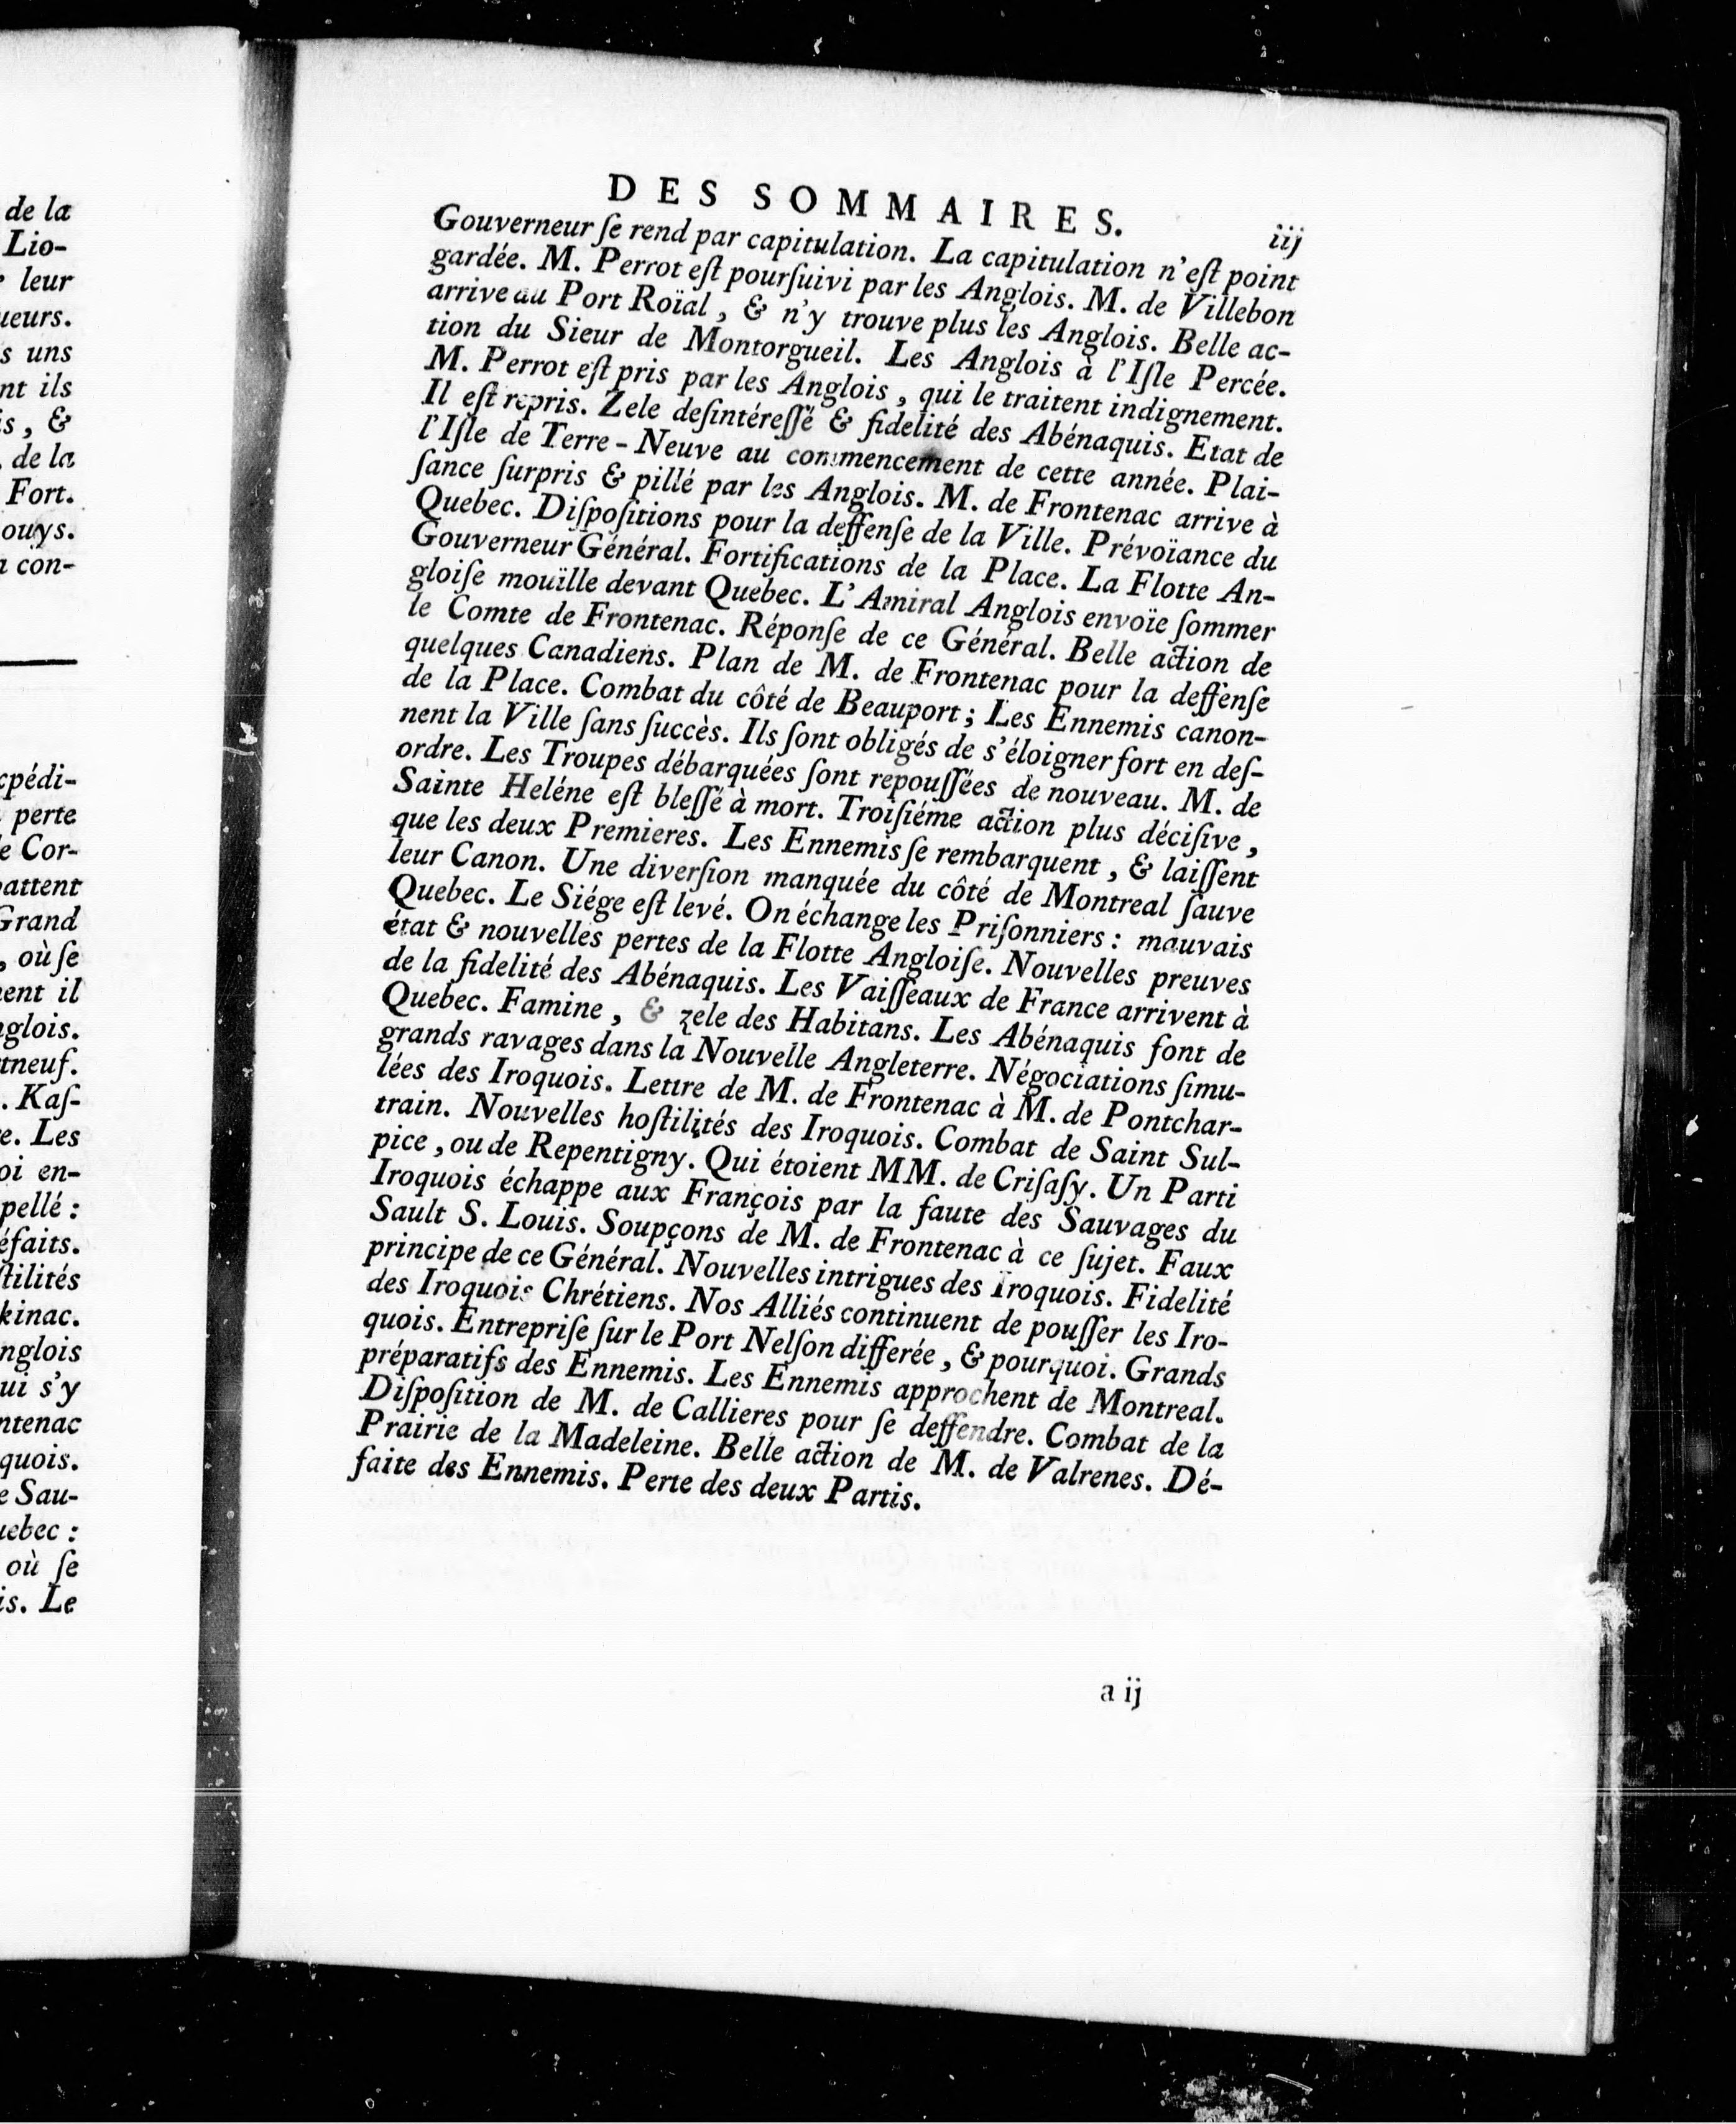 de la
Lio-
leur
ueurs.
s uns
nt ils
is, &
de la
Fort.
ouys.
a con-
xpédi-
perte
e Cor-
battent
Grand
, où ſe
ment il
nglois.
tneuf.
. Kaſ-
re. Les
oi en-
pellé :
éfaits.
ſtilités
kinac.
nglois
ui s'y
ntenac
quois.
e Sau-
uebec :
où ſe
is. Le
DES SOMMAIRES. iij
Gouverneur ſe rend par capitulation. La capitulation n'eſt point
gardée. M. Perrot eſt pourſuivi par les Anglois. M. de Villebon
arrive au Port Roïal, & n'y trouve plus les Anglois. Belle ac-
tion du Sieur de Montorgueil. Les Anglois à l'Iſle Percée.
M. Perrot eſt pris par les Anglois, qui le traitent indignement.
Il eſt repris. Zele deſintéreſſé & fidelité des Abénaquis. Etat de
l'Iſle de Terre-Neuve au commencement de cette année. Plai-
ſance ſurpris & pillé par les Anglois. M. de Frontenac arrive à
Quebec. Diſpoſitions pour la deffenſe de la Ville. Prévoïance du
Gouverneur Général. Fortifications de la Place. La Flotte An-
gloiſe mouïlle devant Quebec. L'Amiral Anglois envoïe ſommer
le Comte de Frontenac. Réponſe de ce Général. Belle action de
quelques Canadiens. Plan de M. de Frontenac pour la deffenſe
de la Place. Combat du côté de Beauport ; Les Ennemis canon-
nent la Ville ſans ſuccès. Ils ſont obligés de s'éloigner fort en deſ-
ordre. Les Troupes débarquées ſont repouſſées de nouveau. M. de
Sainte Heléne eſt bleſſé à mort. Troiſiéme action plus déciſive,
que les deux Premieres. Les Ennemis ſe rembarquent, & laiſſent
leur Canon. Une diverſion manquée du côté de Montreal ſauve
Quebec. Le Siége eſt levé. On échange les Priſonniers : mauvais
état & nouvelles pertes de la Flotte Angloiſe. Nouvelles preuves
de la fidelité des Abénaquis. Les Vaiſſeaux de France arrivent à
Quebec. Famine, & zele des Habitans. Les Abénaquis font de
grands ravages dans la Nouvelle Angleterre. Négociations ſimu-
lées des Iroquois. Lettre de M. de Frontenac à M. de Pontchar-
train. Nouvelles hoſtilités des Iroquois. Combat de Saint Sul-
pice, ou de Repentigny. Qui étoient MM. de Criſaſy. Un Parti
Iroquois échappe aux François par la faute des Sauvages du
Sault S. Louis. Soupçons de M. de Frontenac à ce ſujet. Faux
principe de ce Général. Nouvelles intrigues des Iroquois. Fidelité
des Iroquois Chrétiens. Nos Alliés continuent de pouſſer les Iro-
quois. Entrepriſe ſur le Port Nelſon differée, & pourquoi. Grands
préparatifs des Ennemis. Les Ennemis approchent de Montreal.
Diſpoſition de M. de Callieres pour ſe deffendre. Combat de la
Prairie de la Madeleine. Belle action de M. de Valrenes. Dé-
faite des Ennemis. Perte des deux Partis.
a ij